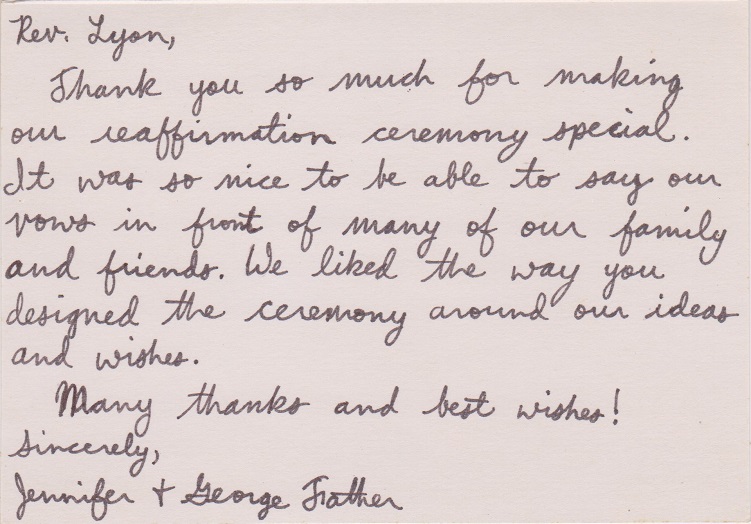 Rev. Lyon,
Thank you so much for making
our reaffirmation ceremony special.
It was so nice to be able to say our
vows in front of many of our family
and friends. We liked the way you
designed the ceremony around our ideas
and wishes.
Many thanks and best wishes!
Sincerely,
Jennifer + George Frather